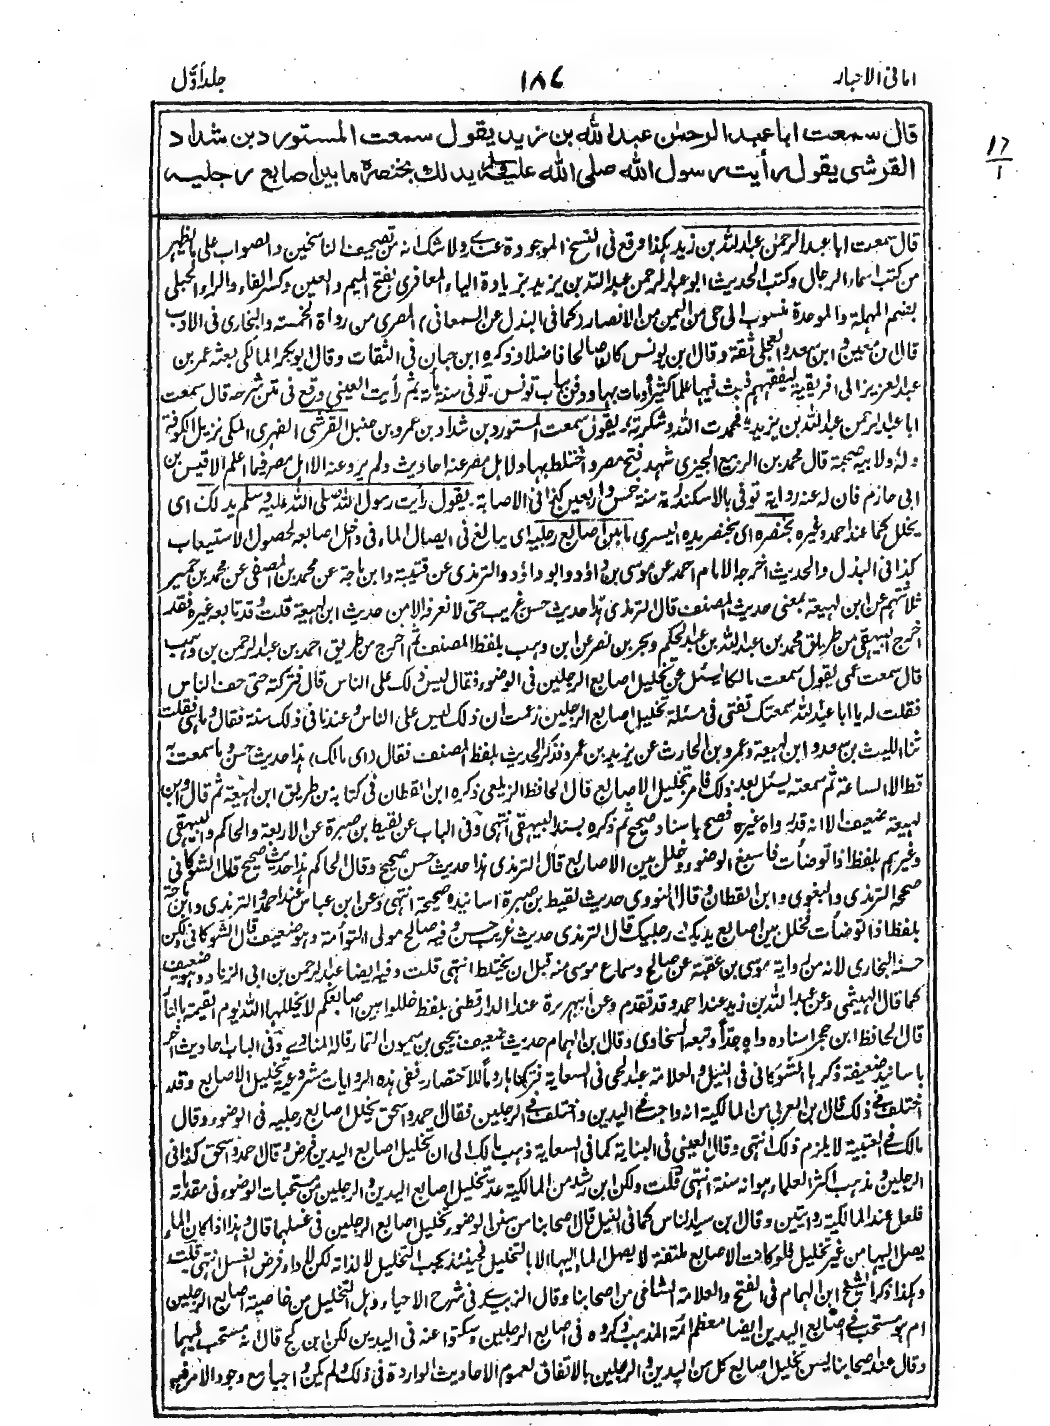 امانی الاحبار ١٨٤ جلد أوّل
قال سمعت ابا عبد الرحمٰن عبد الله بن زيد يقول سمعت المستورد بن شداد
القرشى يقول رأيت رسول الله صلى الله عليه وسلم يدلك بخنصره ما بين اصابع رجليه
١٧
١
قال سمعت ابا عبد الرحمٰن عبد الله بن زيد هكذا وقع فى النسخ الموجودة عندى ولا شك انه من تصحيف الناسخين والصواب على ما يظهر
من كتب اسماء الرجال وكتب الحديث ابو عبد الرحمن عبد الله بن يزيد بزيادة الياء المعافرى بفتح الميم والعين وكسر الفاء والراء الحبلى
بضم المهملة والموحدة منسوب الى حى من اليمن من الانصار كما فى البذل عن السمعانى المصرى من رواة الخمسة والبخارى فى الادب
قال ابن معين وابن سعد والعجلى ثقة وقال ابن يونس كان صالحا فاضلا وذكره ابن حبان فى الثقات وقال ابوبكر المالكى بعثه عمر بن
عبد العزيز الى افريقية ليفقههم فبث فيها علما كثيرا ومات بها ودفن بباب تونس توفى سنة مائة ثم رأيت العينى وقع فى متن شرحه قال سمعت
ابا عبد الرحمن عبد الله بن يزيد فحمدت الله وشكرته يقول سمعت المستورد بن شداد بن عمرو بن حنبل القرشى الفهرى المكى نزيل الكوفة
وله ولابيه صحبة قال محمد بن الربيع الجيزى شهد فتح مصر واختلط بها ولاهل مصر عنه احاديث ولم يرو عنه الا اهل مصر فيما اعلم الا قيس بن
ابى حازم فان له عنه رواية توفى بالاسكندرية سنة خمس واربعين كذا فى الاصابة يقول رأيت رسول الله صلى الله عليه وسلم يدلك اى
يخلل كما عند احمد وغيره بخنصره اى بخنصر يده اليسرى ما بين اصابع رجليه اى يبالغ فى ايصال الماء فى داخل اصابعه لحصول الاستيعاب
كذا فى البذل والحديث اخرجه الامام احمد عن موسى بن داؤد وابو داؤد والترمذى عن قتيبة وابن ماجة عن محمد بن المصفى عن محمد بن حمير
ثلاثتهم عن ابن لهيعة بمعنى حديث المصنف قال الترمذى هذا حديث حسن غريب حتى لا نعرفه الا من حديث ابن لهيعة قلت وقد تابعه غيره فقد
اخرج البيهقى من طريق محمد بن عبد الله بن عبد الحكم وبحر بن نصر عن ابن وهب بلفظ المصنف ثم اخرج من طريق احمد بن عبد الرحمن بن وهب
قال سمعت عمى يقول سمعت مالكا يسئل عن تخليل اصابع الرجلين فى الوضوء فقال ليس ذلك على الناس قال فتركته حتى خف الناس
فقلت له يا ابا عبد الله سمعتك تفتى فى مسئلة تخليل اصابع الرجلين زعمت ان ذلك ليس على الناس وعندنا فى ذلك سنة فقال وما هى فقلت
ثنا الليث بن سعد وابن لهيعة وعمرو بن الحارث عن يزيد بن عمرو فذكر الحديث بلفظ المصنف فقال (اى مالك) هذا حديث حسن وما سمعت به
قط الا الساعة ثم سمعته يسئل بعد ذلك فامر بتخليل الاصابع قال الحافظ الزيلعى ذكره ابن القطان فى كتابه من طريق ابن لهيعة ثم قال وابن
لهيعة ضعيف الا انه قد رواه غيره فصح باسناد صحيح ثم ذكره بسند البيهقى انتهى وفى الباب عن لقيط بن صبرة عن الاربعة والحاكم والبيهقى
وغيرهم بلفظ اذا توضأت فاسبغ الوضوء وخلل بين الاصابع قال الترمذى هذا حديث حسن صحيح وقال الحاكم هذا حديث صحيح قال الشوكانى
صححه الترمذى والبغوى وابن القطان وقال النووى حديث لقيط بن صبرة اسانيده صحيحة انتهى وعن ابن عباس عند احمد والترمذى وابن ماجة
بلفظ اذا توضأت فخلل بين اصابع يديك ورجليك قال الترمذى حديث غريب حسن وفيه صالح مولى التوأمة وهو ضعيف قال الشوكانى ولكن
حسنه البخارى لانه من رواية موسى بن عقبة عن صالح وسماع موسى منه قبل ان يختلط انتهى قلت وفيه ايضا عبد الرحمن بن ابى الزناد وهو ضعيف
كما قال الهيثمى وعن عبد الله بن زيد عند احمد وقد تقدم وعن ابى هريرة عند الدارقطنى بلفظ خللوا بين اصابعكم لا يخللها الله يوم القيمة بالنار
قال الحافظ ابن حجر اسناده واه جداً وتبعه السخاوى وقال ابن الهمام حديث ضعيف بيحيى بن ميمون التمار قاله المناوى وفى الباب احاديث اخر
باسانيد ضعيفة ذكرها الشوكانى فى النيل والعلامة عبد الحى فى السعاية فتركناها روماً للاختصار ففى هذه الروايات مشروعية تخليل الاصابع وقد
اختلف فى ذلك قال ابن العربى من المالكية انه واجب فى اليدين واختلف فى الرجلين فقال احمد واسحق يخلل اصابع رجليه فى الوضوء وقال
مالك فى العتبية لا يلزم ذلك انتهى وقال العينى فى البناية كما فى السعاية ذهب مالك الى ان تخليل اصابع اليدين فرض وقال احمد واسحق كذا فى
الرجلين ومذهب أكثر العلماء هو انه سنة انتهى قلت ولكن ابن رشد من المالكية عد تخليل اصابع اليدين والرجلين من مستحبات الوضوء فى مقدماته
فلعل عند المالكية روايتين وقال ابن سيد الناس كما فى النيل قال اصحابنا من سنن الوضوء تخليل اصابع الرجلين فى غسلها قال وهذا اذا كان الماء
يصل اليها من غير تخليل فلو كانت الاصابع ملتفة لا يصل الماء اليها الا بالتخليل فحينئذ يجب التخليل لا لذاته لكن لاداء فرض الغسل انتهى قلت
وهكذا ذكر الشيخ ابن الهمام فى الفتح والعلامة الشامى من اصحابنا وقال الزبيدى فى شرح الاحياء وهل التخليل من خاصية اصابع الرجلين
ام هو مستحب فى اصابع اليدين ايضا معظم ائمة المذهب ذكروه فى اصابع الرجلين وسكتوا عنه فى اليدين لكن ابن كج قال انه مستحب فيهما
وقال عند اصحابنا يسن تخليل اصابع كل من اليدين والرجلين بالاتفاق لعموم الاحاديث الواردة فى ذلك ولم يكن واجبا مع وجود الامر فيه